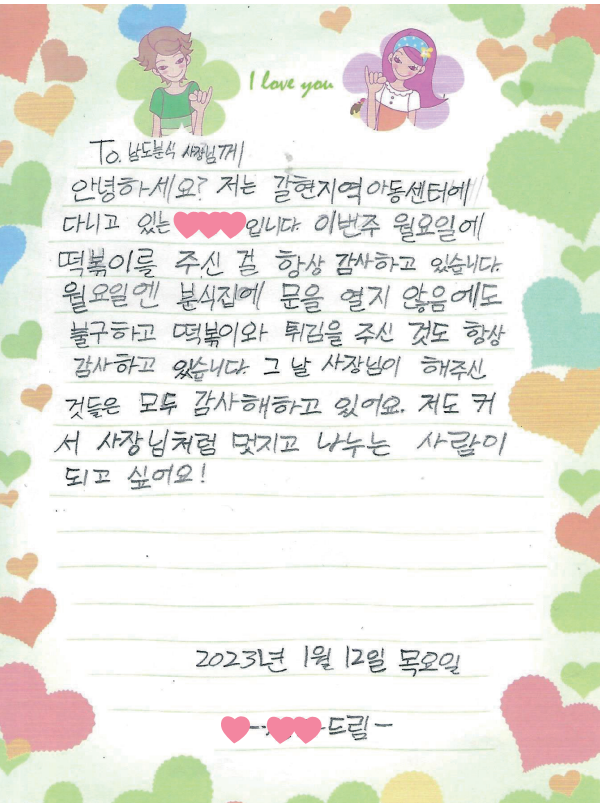 I love you
To. 남도분식 사장님께
안녕하세요? 저는 갈현지역아동센터에
다니고 있는 입니다. 이번주 월요일에
떡볶이를 주신 걸 항상 감사하고 있습니다.
월요일엔 분식집에 문을 열지 않음에도
불구하고 떡볶이와 튀김을 주신 것도 항상
감사하고 있습니다. 그 날 사장님이 해주신
것들은 모두 감사해하고 있어요. 저도 커
서 사장님처럼 멋지고 나누는 사람이
되고 싶어요!
2023년 1월 12일 목요일
- 드림 -